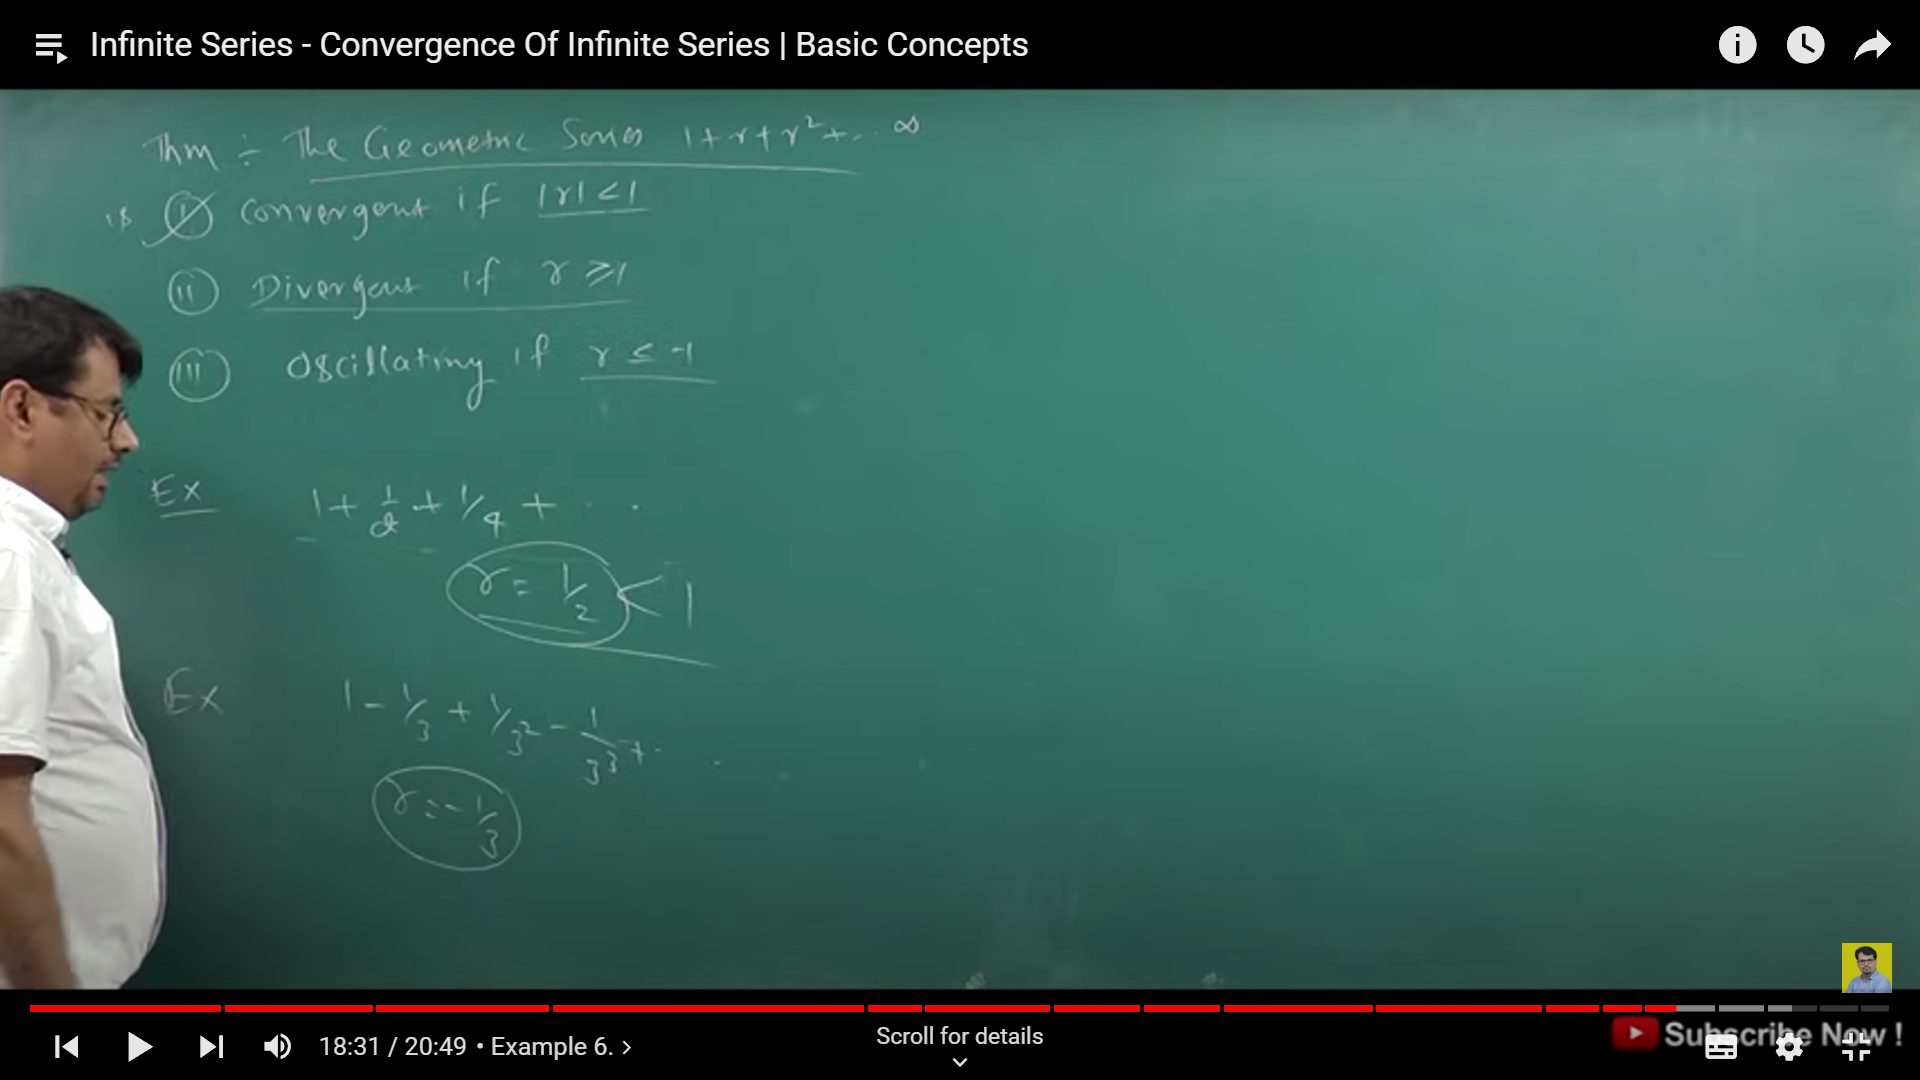 Infinite Series - Convergence Of Infinite Series | Basic Concepts
Thm ÷ The Geometric Series 1+r+r²+.. ∞
is (i) Convergent if |r|<1
(ii) Divergent if r ≥1
(iii) Oscillating if r ≤ -1
Ex 1 + 1/2 + 1/4 + . . .
r = 1/2 < 1
Ex 1 - 1/3 + 1/3² - 1/3³ + . . .
r = - 1/3
18:31 / 20:49 • Example 6. >
Scroll for details
Subscribe Now !